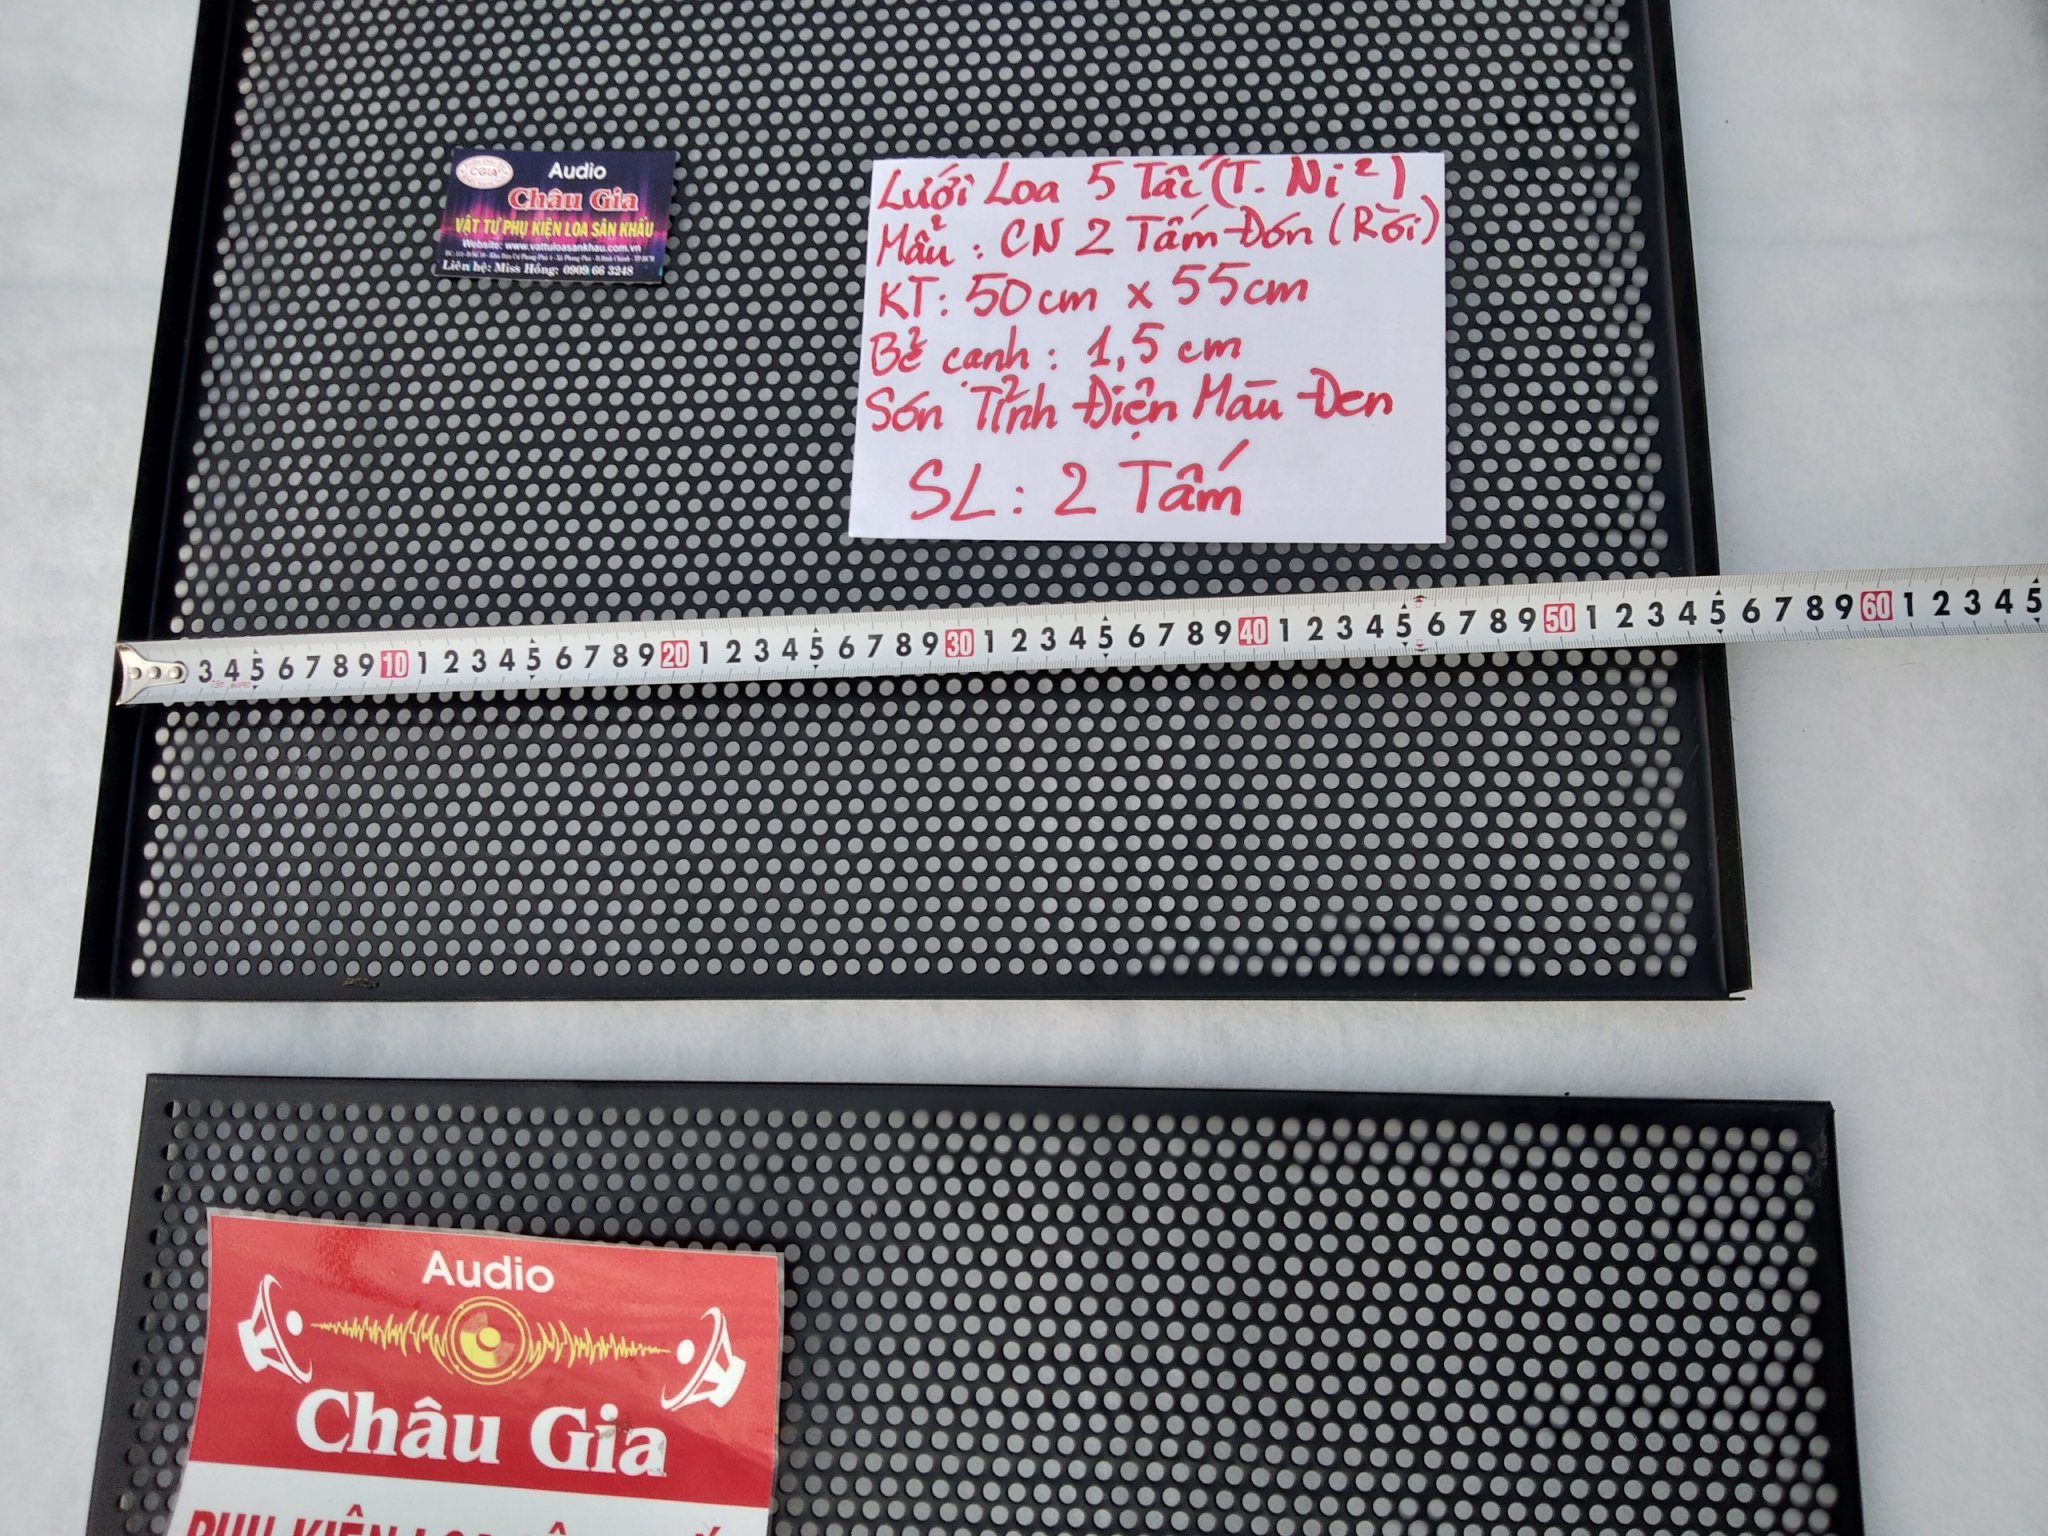 CGIA
Audio
Châu Gia
VẬT TƯ PHỤ KIỆN LOA SÂN KHẤU
Website: www.vattuloasankhau.com.vn
Liên hệ: Miss Hồng: 0909 66 3248
Lưới Loa 5 Tấc (T. Ni²)
Mẫu: CN 2 Tấm Đơn (Rời)
KT: 50cm x 55cm
Bẻ cạnh: 1,5 cm
Sơn Tĩnh Điện Màu Đen
SL: 2 Tấm
3 4 5 6 7 8 9 10 1 2 3 4 5 6 7 8 9 20 1 2 3 4 5 6 7 8 9 30 1 2 3 4 5 6 7 8 9 40 1 2 3 4 5 6 7 8 9 50 1 2 3 4 5 6 7 8 9 60 1 2 3 4 5
Audio
Châu Gia
PHỤ KIỆN LOA